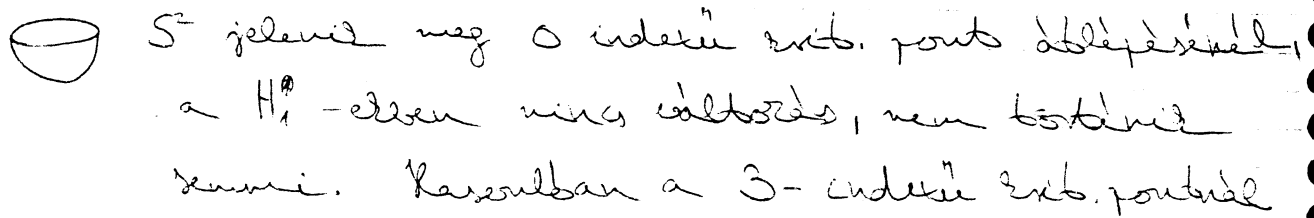 S² jelenik meg 0 indexű krit. pont átlépésénél,
a H₁ -ekben nincs változás, nem történik
semmi. Hasonlóan a 3-indexű krit. pontnál